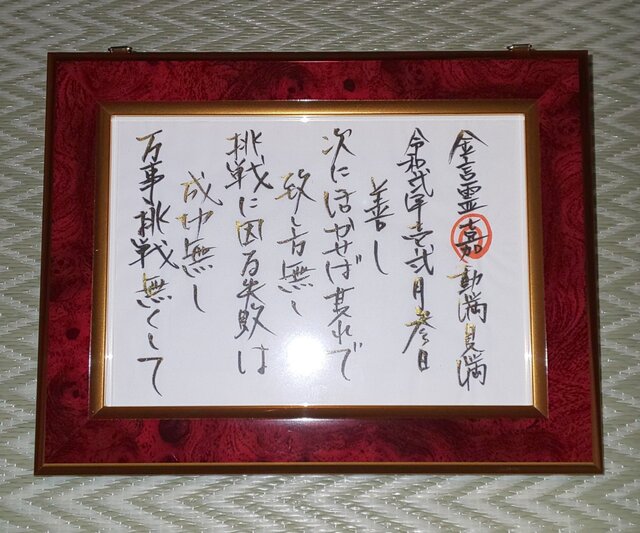 万事挑戦無くして
成功無し
挑戦に因る失敗は
致し方無し
次に活かせば其れで
善し
令和弐年壱弐月参日
金言霊嘉